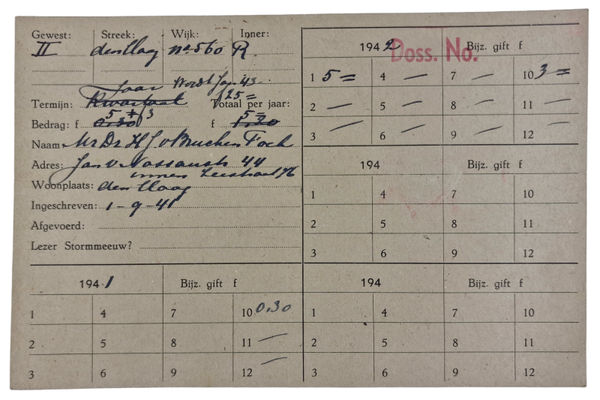 Gewest: Streek: Wijk: Inner:
II den Haag no 560 R.
Jaar Wordt Jan 43
Termijn: Kwartaal Totaal per jaar: f 25 =
Bedrag: f 0.30 5 f 1.20 5 =
Naam Mr Dr H J v Brucken Fock
Adres: Jan v Nassaustr 44
Woonplaats: den Haag
Ingeschreven: 1-9-41
Afgevoerd:
Lezer Stormmeeuw?
1942 Bijz. gift f
Doss. No.
1 5 = 4 — 7 — 10 3 =
2 — 5 — 8 — 11 —
3 — 6 — 9 — 12 —
194 Bijz. gift f
1 4 7 10
2 5 8 11
3 6 9 12
1941 Bijz. gift f
1 4 7 10 0.30
2 5 8 11 —
3 6 9 12 —
194 Bijz. gift f
1 4 7 10
2 5 8 11
3 6 9 12